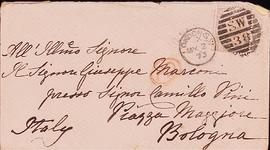 LONDON S.W
2
73
S.W
38
All'Illmo Signore
Il Signor Giuseppe Marconi
presso Signor Camillo Pini
Piazza Maggiore
Italy
Bologna